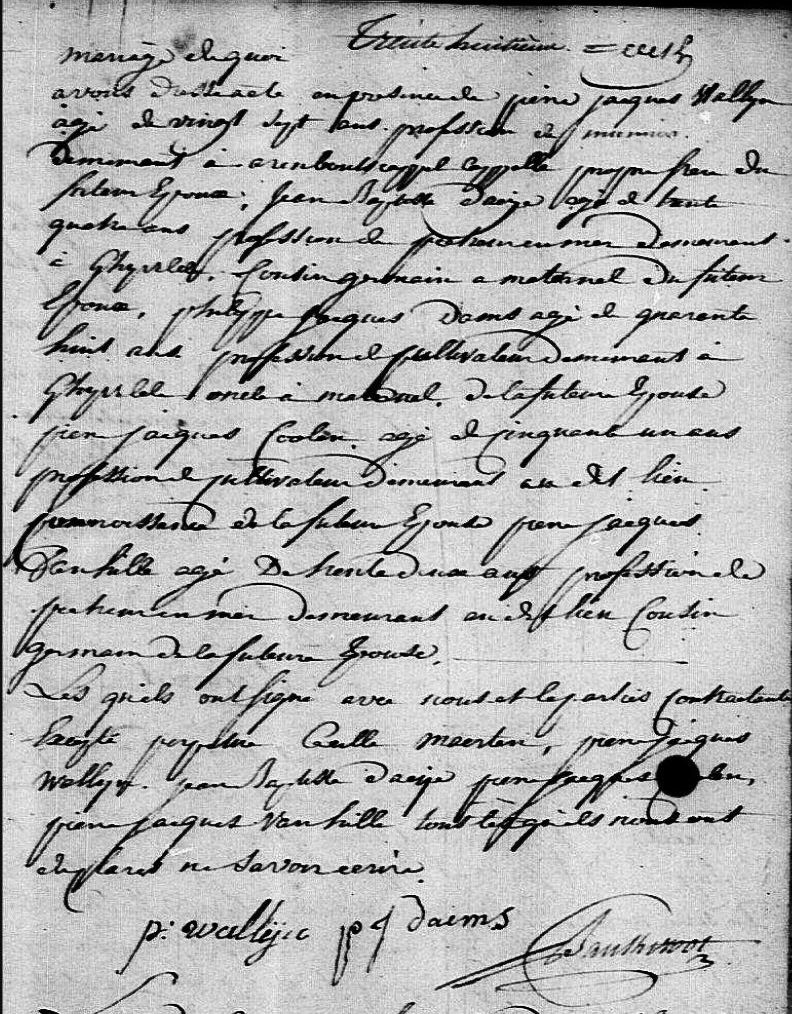 Trente huitième
mariage de quoi
avons dressé acte en présence de pierre jacques Wallyn
agé de vingt sept ans profession de meunier
demeurant à arenboutscappel cappelle propre frere du
futeur Epoux, Jean Baptiste Daeije agé de trente
quatre ans profession de pecheur en mer demeurant
à Ghyvelde, Cousin germain a maternel du futeur
Epoux, philippe jacques Dams agé de quarente
huit ans profession de cultivateur demeurant à
Ghyvelde oncle à maternel de la future Epouse
piere jacques Coolen agé de cinquante un ans
profession de cultivateur demeurant au dit lieu
connoissance de la future Epouse piere jacques
Vanhille agé De trente deux ans profession de
pecheur en mer demeurant au dit lieu Cousin
germain de la future Epouse.
Les quels ont signe avec nous et les parties contractantes
Excepté perpetue Cecille maerten, piere Jacques
Wallyn, jean Baptiste daeije piere jacques
piere jacques Vanhille tous lesquels nous ont
declarés ne savoir ecrire.
p: wallijn pj daems